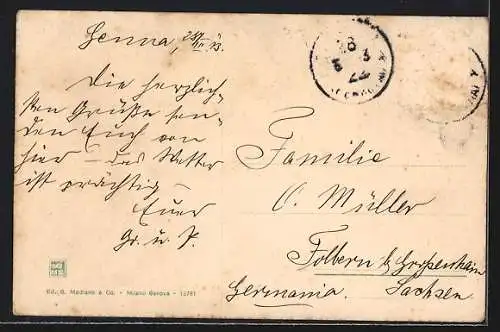 Genua, 28/III 23.
Die herzlich-
sten Grüße sen-
den Euch von
hier – das Wetter
ist prächtig –
Euer
Gr. u. P.
Familie
O. Müller
Folbern b/ Großenhain
Sachsen.
Germania.
Ed. G. Modiano & Co. - Milano Genova -